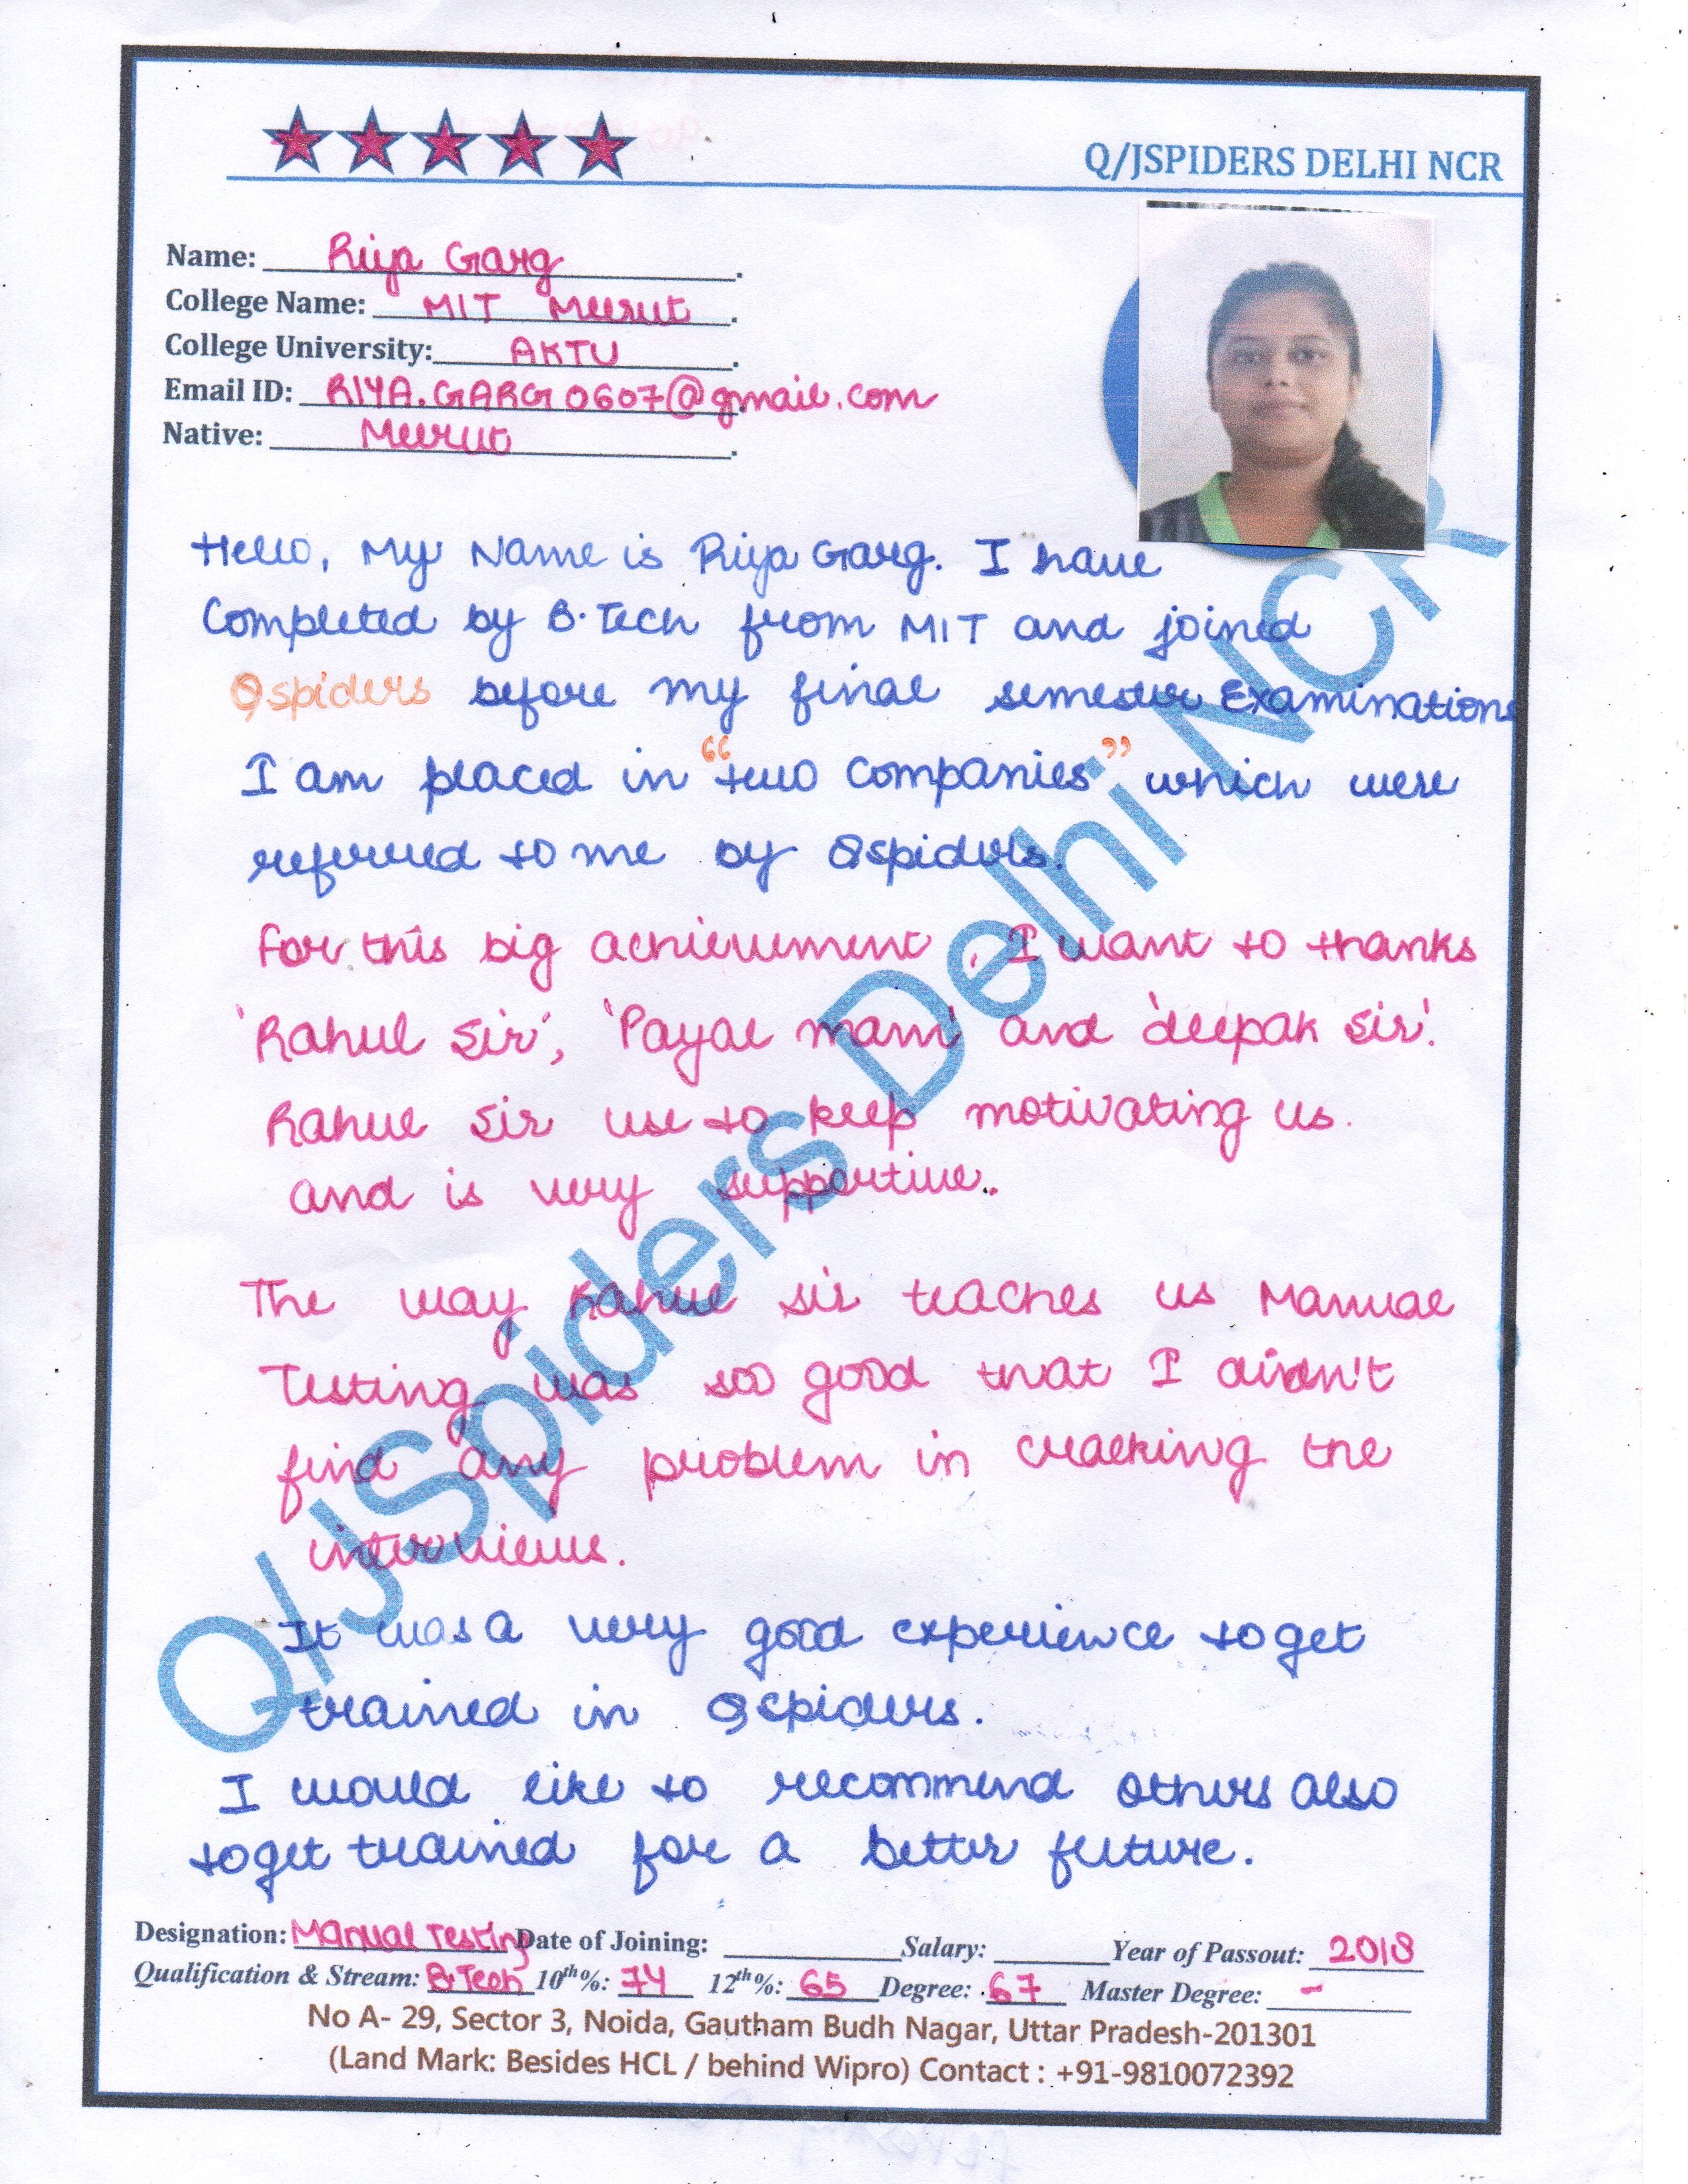 Q/JSPIDERS DELHI NCR
Name: Riya Garg.
College Name: MIT Meerut.
College University: AKTU.
Email ID: RIYA.GARG0607@gmail.com
Native: Meerut.
Hello, My Name is Riya Garg. I have
Completed by B.Tech from MIT and joined
Qspiders before my final semester Examinations
I am placed in "two Companies" which were
referred to me by Qspiders.
For this big achievement, I want to thanks
'Rahul Sir', 'Payal mam' and 'deepak Sir'.
Rahul Sir use to keep motivating us.
and is very supportive.
The way Rahul sir teaches us Manual
Testing was soo good that I didn't
find any problem in cracking the
interviews.
It was a very good experience to get
trained in Qspiders.
I would like to recommend others also
to get trained for a better future.
Designation: Manual Testing Date of Joining: Salary: Year of Passout: 2018
Qualification & Stream: B.Tech 10th%: 74 12th%: 65 Degree: 67 Master Degree: -
No A- 29, Sector 3, Noida, Gautham Budh Nagar, Uttar Pradesh-201301
(Land Mark: Besides HCL / behind Wipro) Contact : +91-9810072392
Q/JSpiders Delhi NCR